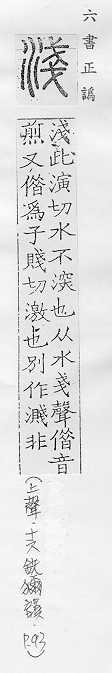 六書正譌
淺
淺此演切水不深也从水戔聲僭音
煎又僭爲子賤切激也別作濺非
(上聲.十六銑獮韻.
P.93)